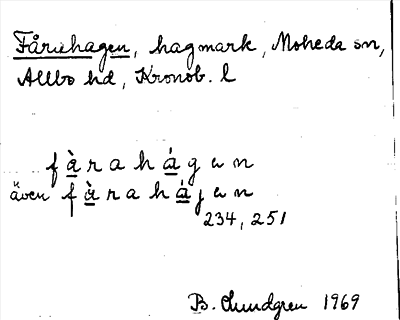 Fåruhagen, hagmark, Moheda sn,
Allbo hd, Kronob. l
fàrahágun
även fàrahájun
234, 251
B. Lundgren 1969